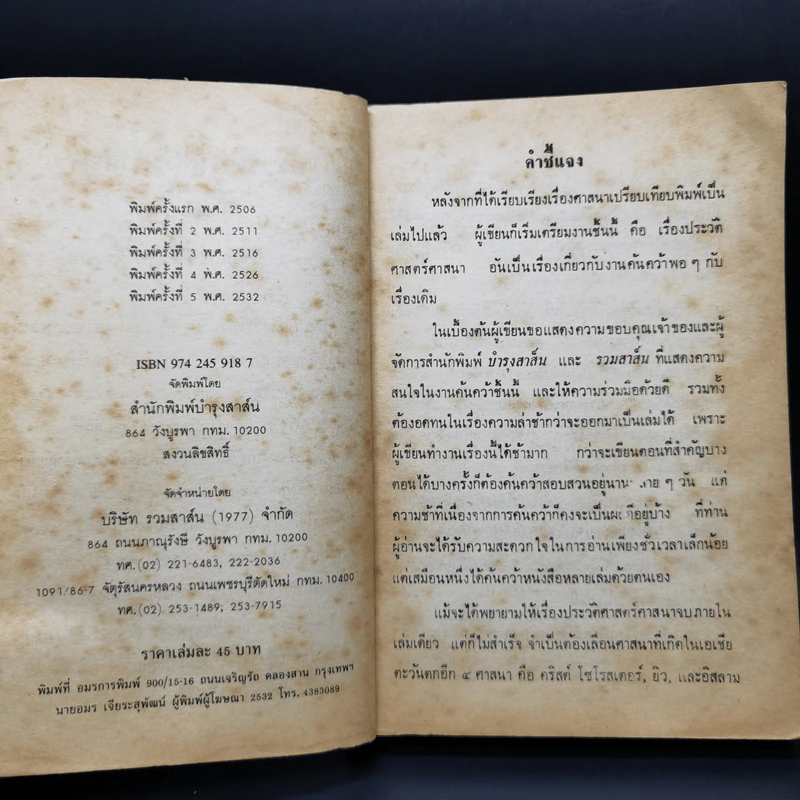 พิมพ์ครั้งแรก พ.ศ. 2506
พิมพ์ครั้งที่ 2 พ.ศ. 2511
พิมพ์ครั้งที่ 3 พ.ศ. 2516
พิมพ์ครั้งที่ 4 พ.ศ. 2526
พิมพ์ครั้งที่ 5 พ.ศ. 2532
ISBN 974 245 918 7
จัดพิมพ์โดย
สำนักพิมพ์บำรุงสาส์น
864 วังบูรพา กทม. 10200
สงวนลิขสิทธิ์
จัดจำหน่ายโดย
บริษัท รวมสาส์น (1977) จำกัด
864 ถนนภาณุรังษี วังบูรพา กทม. 10200
ทศ.(02) 221-6483, 222-2036
1091/86-7 จัตุรัสนครหลวง ถนนเพชรบุรีตัดใหม่ กทม. 10400
ทศ.(02) 253-1489; 253-7915
ราคาเล่มละ 45 บาท
พิมพ์ที่ อมรการพิมพ์ 900/15-16 ถนนเจริญรัถ คลองสาน กรุงเทพฯ
นายอมร เจียระสุพัฒน์ ผู้พิมพ์ผู้โฆษณา 2532 โทร. 4383089
คำชี้แจง
หลังจากที่ได้เรียบเรียงเรื่องศาสนาเปรียบเทียบพิมพ์เป็น
เล่มไปแล้ว ผู้เขียนก็เริ่มเตรียมงานชิ้นนี้ คือ เรื่องประวัติ
ศาสตร์ศาสนา อันเป็นเรื่องเกี่ยวกับงานค้นคว้าพอ ๆ กับ
เรื่องเดิม
ในเบื้องต้นผู้เขียนขอแสดงความขอบคุณเจ้าของและผู้
จัดการสำนักพิมพ์ บำรุงสาส์น และ รวมสาส์น ที่แสดงความ
สนใจในงานค้นคว้าชิ้นนี้ และให้ความร่วมมือด้วยดี รวมทั้ง
ต้องอดทนในเรื่องความล่าช้ากว่าจะออกมาเป็นเล่มได้ เพราะ
ผู้เขียนทำงานเรื่องนี้ได้ช้ามาก กว่าจะเขียนตอนที่สำคัญบาง
ตอนได้บางครั้งก็ต้องค้นคว้าสอบสวนอยู่นาน ๆ วัน แต่
ความช้าที่เนื่องจากการค้นคว้าก็คงจะเป็นผลดีอยู่บ้าง ที่ท่าน
ผู้อ่านจะได้รับความสะดวกใจในการอ่านเพียงชั่วเวลาเล็กน้อย
แต่เสมือนหนึ่งได้ค้นคว้าหนังสือหลายเล่มด้วยตนเอง
แม้จะได้พยายามให้เรื่องประวัติศาสตร์ศาสนาจบภายใน
เล่มเดียว แต่ก็ไม่สำเร็จ จำเป็นต้องเลื่อนศาสนาที่เกิดในเอเซีย
ตะวันตกอีก ๔ ศาสนา คือ คริสต์ โซโรสเตอร์, ยิว, และอิสลาม